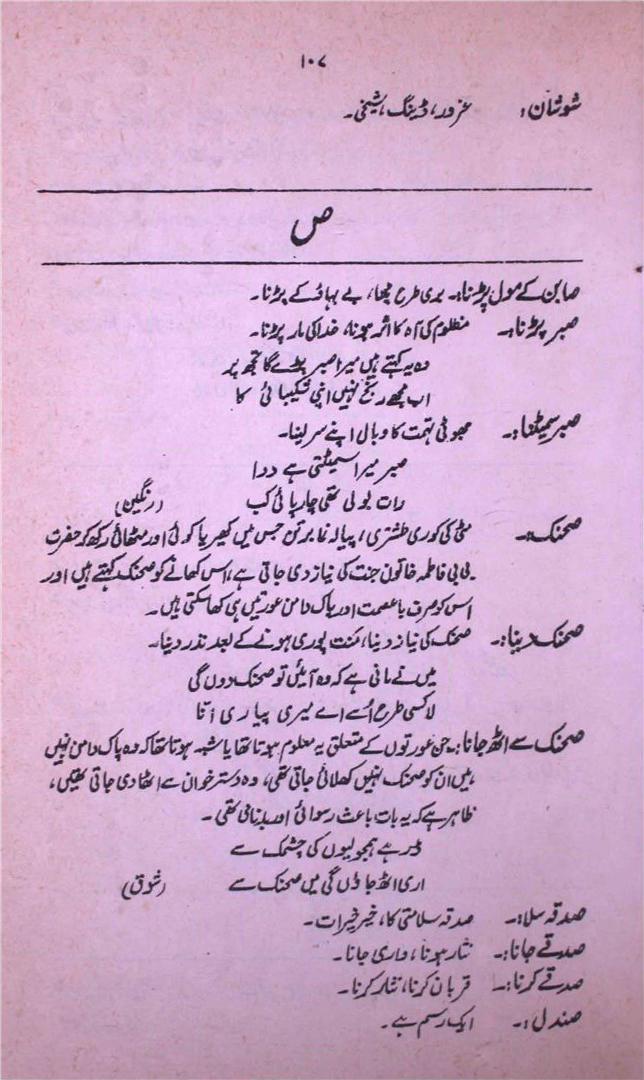 ۱۰۷
شوشان:    غرور، ڈینگ، شیخی۔
ص
صابن کے مول پڑنا:۔ بری طرح پٹنا، بے بھاؤ کے پڑنا۔
صبر پڑنا:۔    مظلوم کی آہ کا اثر ہونا، خدا کی مار پڑنا۔
وہ یہ کہتے ہیں میرا صبر پڑے گا تجھ پر
اب مجھے رنج نہیں اپنی شکیبائی کا
صبر سمیٹنا:۔    جھوٹی تہمت کا وبال اپنے سر لینا۔
صبر میرا سمیٹتی ہے ددا
رات بولی تھی چارپائی کب    (رنگین)
صحنک:۔    مٹی کی کوری طشتری، پیالہ نما برتن جس میں کھیر یا کوئی اور مٹھائی رکھ کر حضرت
بی بی فاطمہ خاتون جنت کی نیاز دی جاتی ہے، اس کھانے کو صحنک کہتے ہیں اور
اس کو صرف باعصمت اور پاک دامن عورتیں ہی کھا سکتی ہیں۔
صحنک دینا:۔    صحنک کی نیاز دینا، مَنت پوری ہونے کے بعد نذر دینا۔
میں نے مانی ہے کہ وہ آئیں تو صحنک دوں گی
لا کسی طرح اُسے اے میری پیاری اتنا
صحنک سے اٹھ جانا:۔ جن عورتوں کے متعلق یہ معلوم ہوتا تھا یا شبہ ہوتا تھا کہ وہ پاک دامن نہیں
ہیں ان کو صحنک نہیں کھلائی جاتی تھی، وہ دسترخوان سے اٹھا دی جاتی تھیں،
ظاہر ہے کہ یہ بات باعث رسوائی اور بدنامی تھی۔
ڈر ہے ہمجولیوں کی چشمک سے
اری اٹھ جاؤں گی میں صحنک سے    (شوق)
صدقہ سلا:۔    صدقہ سلامتی کا، خیر خیرات۔
صدقے جانا:۔    نثار ہونا، واری جانا۔
صدقے کرنا:۔    قربان کرنا، نثار کرنا۔
صندل:۔    ایک رسم ہے۔